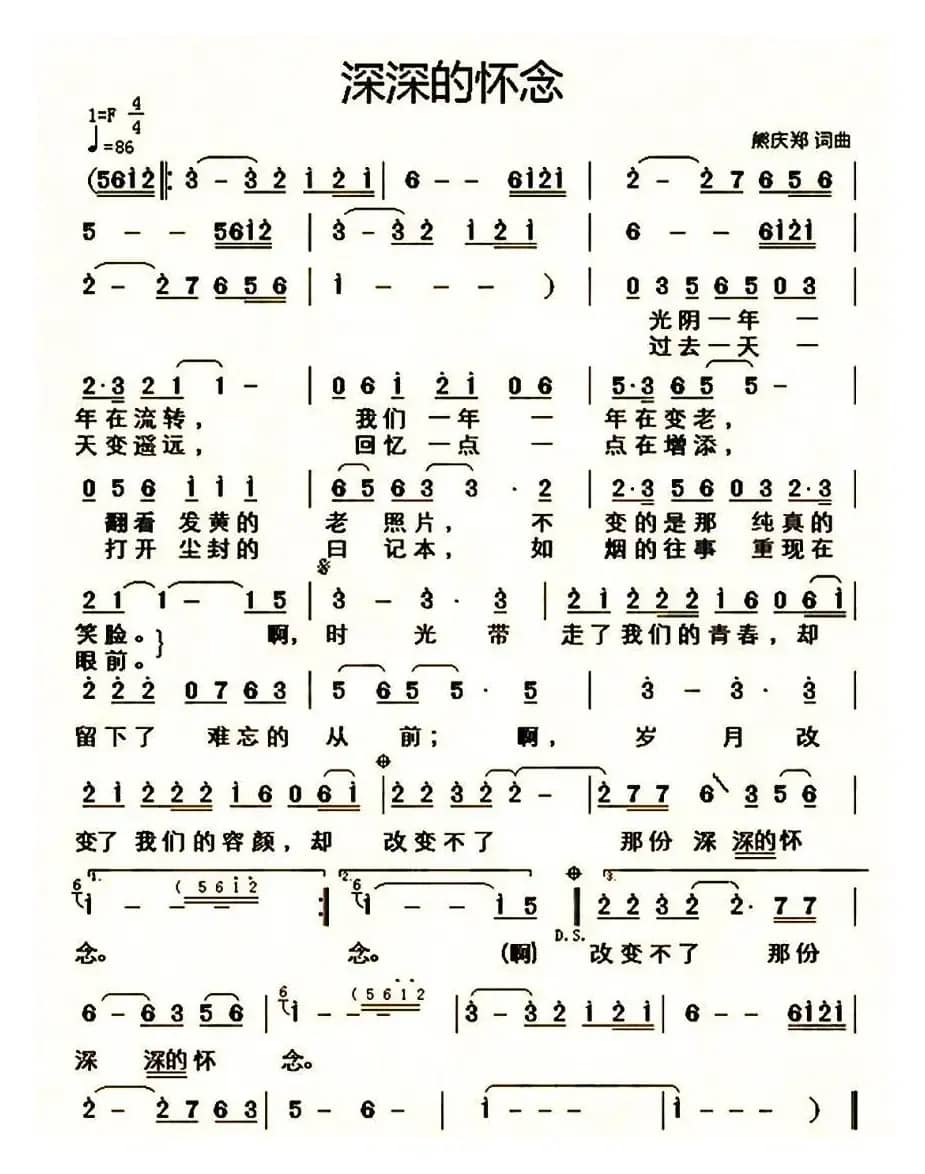 深深的怀念
1=F 4/4
♩=86
熊庆郑 词曲
(5612‖: 3 - 32 121 | 6 - - 6121 | 2 - 27 656 |
5 - - 5612 | 3 - 32 121 | 6 - - 6121 |
2 - 27 656 | 1 - - - ) | 03 56 50 3 |
光阴一年 一
过去一天 一
2·3 21 1 - | 06 1 21 06 | 5·3 65 5 - |
年在流转， 我们 一年 一 年在变老，
天变遥远， 回忆 一点 一 点在增添，
05 6 1 1 1 | 65 63 3 · 2 | 2·3 56 03 2·3 |
翻看 发黄的 老 照片， 不 变的是那 纯真的
打开 尘封的 日 记本， 如 烟的往事 重现在
21 1 - 15 | 3 - 3 · 3 | 21 222 16 061 |
笑脸。} 啊， 时 光 带 走了我们的青春，却
眼前。
2 2 2 07 63 | 5 65 5 · 5 | 3 - 3 · 3 |
留下了 难忘的 从 前； 啊， 岁 月 改
21 222 16 061 | 22 32 2 - | 277 6 3 56 |
变了 我们的容颜，却 改变不了 那份 深 深的怀
1. 6 1 - - (5612 :‖ 2. 6 1 - - 15 ‖ 3. 22 32 2· 77 |
念。 念。 (啊) D.S. 改变不了 那份
6 - 63 56 | 6 1 - - (5612 | 3 - 32 121 | 6 - - 6121 |
深 深的怀 念。
2 - 27 63 | 5 - 6 - | 1 - - - | 1 - - ) ‖